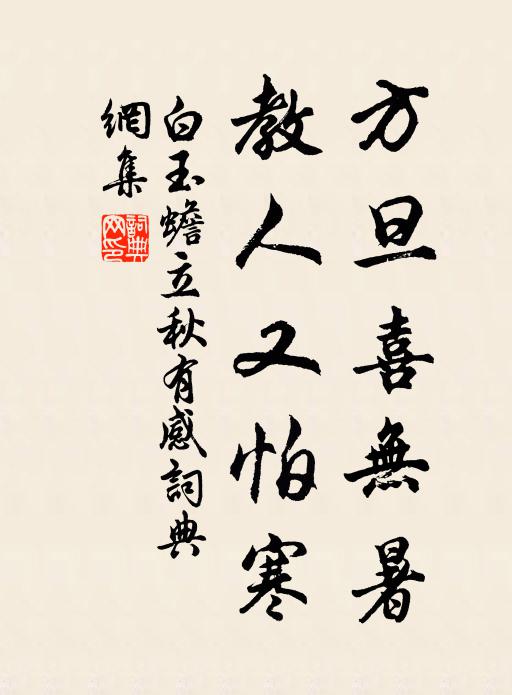 方旦喜無暑
教人又怕寒
白玉蟾立秋有感詞典
網集
詞典
网印